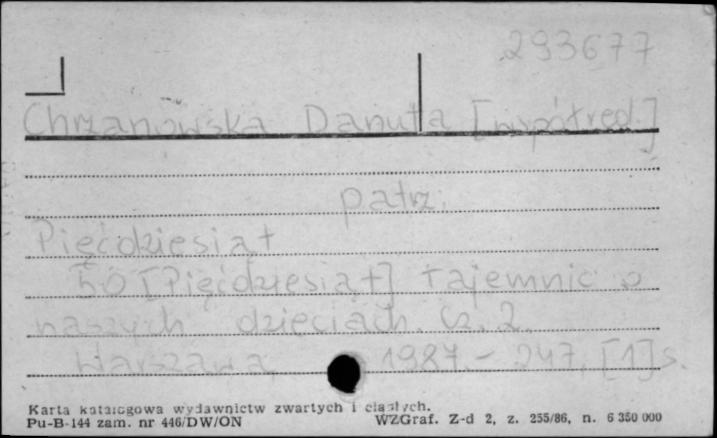 293677
Chrzanowska Danuta [współred.]
patrz.
Pięćdziesiąt
50 [Pięćdziesiąt] tajemnic o
naszych dzieciach. Cz. 2.
Warszawa 1987. - 247, [1] s.
Karta katalogowa wydawnictw zwartych i ciągłych.
Pu-B-144 zam. nr 446/DW/ON WZGraf. Z-d 2, z. 255/86, n. 6 350 000